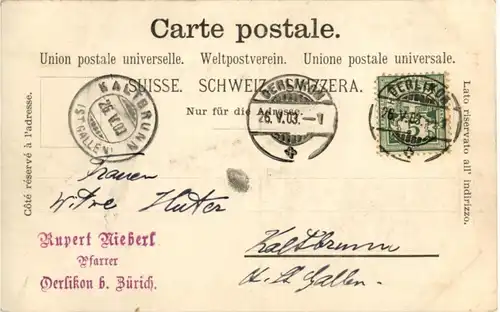 Carte postale.
Union postale universelle. Weltpostverein. Unione postale universale.
SUISSE. SCHWEIZ. SVIZZERA.
Nur für die Adresse.
Côté réservé à l'adresse.
Lato riservato all' indirizzo.
KALTBRUNN
26.V.03
(ST. GALLEN)
OERLIKON
26.V.03.-1
OERLIKON
26.V.03
5
Frauen
Witwe Huter
Kaltbrunn
Kt. St. Gallen
Rupert Nieberl
Pfarrer
Oerlikon b. Zürich.